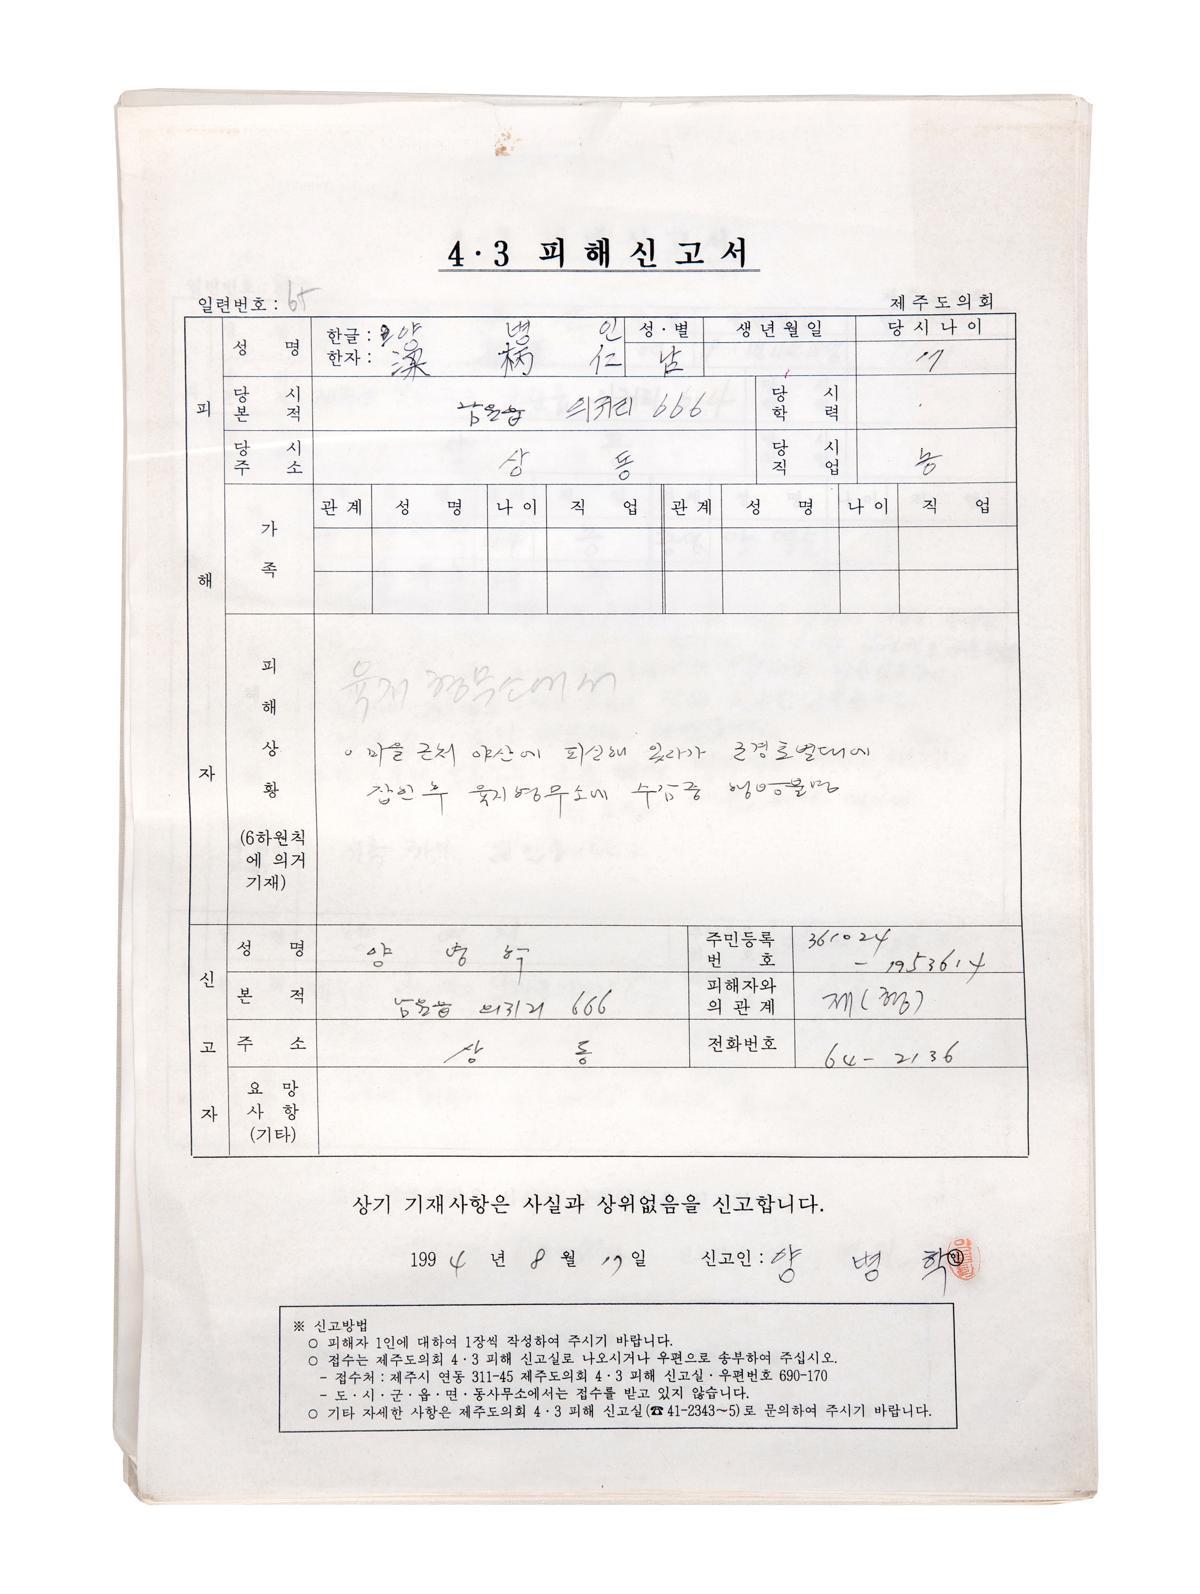 4·3 피해신고서
일련번호: 65
제주도의회
피해자
성명 한글: 양병인 성·별 생년월일 당시나이
한자: 梁 病 仁 남 17
당시본적 남원읍 의귀리 666 당시학력
당시주소 상동 당시직업 농
가족
관계 성명 나이 직업 관계 성명 나이 직업
피해상황
(6하원칙에 의거 기재)
육지 형무소에서
마을 근처 야산에 피신해 있다가 군경토벌대에
잡힌 후 육지형무소에 수감중 행방불명
신고자
성명 양병학 주민등록번호 361024
- 1953614
본적 남원읍 의귀리 666 피해자와의 관계 제(형)
주소 상동 전화번호 64-2136
요망사항
(기타)
상기 기재사항은 사실과 상위없음을 신고합니다.
1994년 8월 17일 신고인: 양병학 인
※ 신고방법
○ 피해자 1인에 대하여 1장씩 작성하여 주시기 바랍니다.
○ 접수는 제주도의회 4·3 피해 신고실로 나오시거나 우편으로 송부하여 주십시오.
- 접수처: 제주시 연동 311-45 제주도의회 4·3 피해 신고실·우편번호 690-170
- 도·시·군·읍·면·동사무소에서는 접수를 받고 있지 않습니다.
○ 기타 자세한 사항은 제주도의회 4·3 피해 신고실(☎41-2343~5)로 문의하여 주시기 바랍니다.